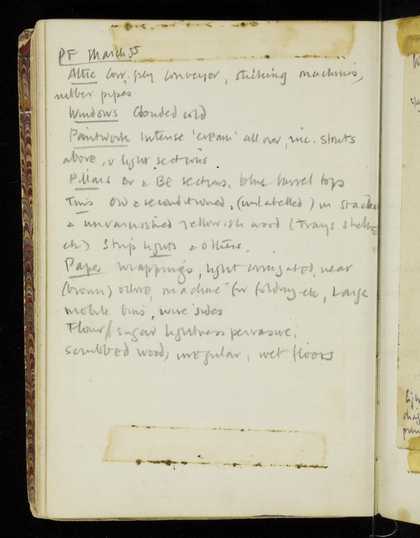 PF March 55
Attic Corr. ply conveyor, stitching machines,
rubber pipes
Windows Clouded cold
Paintwork Intense 'cream' all over, inc. struts
above, & light sections
Pillars Or & BE sections, blue barrel tops
Tins Old & reconditioned, (unlabelled) in stacks
& unvarnished yellowish wood (Trays shelves
etc) Strip lights & others.
Paper wrappings, light corrugated, near
(brown) ochre, machine for folding etc, Large
mobile bins, wire sides
Flour/sugar lightness pervasive,
scrubbed wood, irregular, wet floors